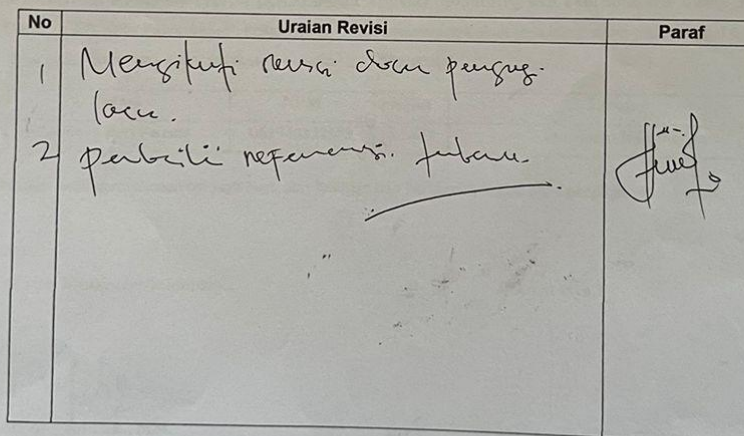 No Uraian Revisi Paraf
1 Mengikuti revisi dosen penguji
2 perbaiki referensi.